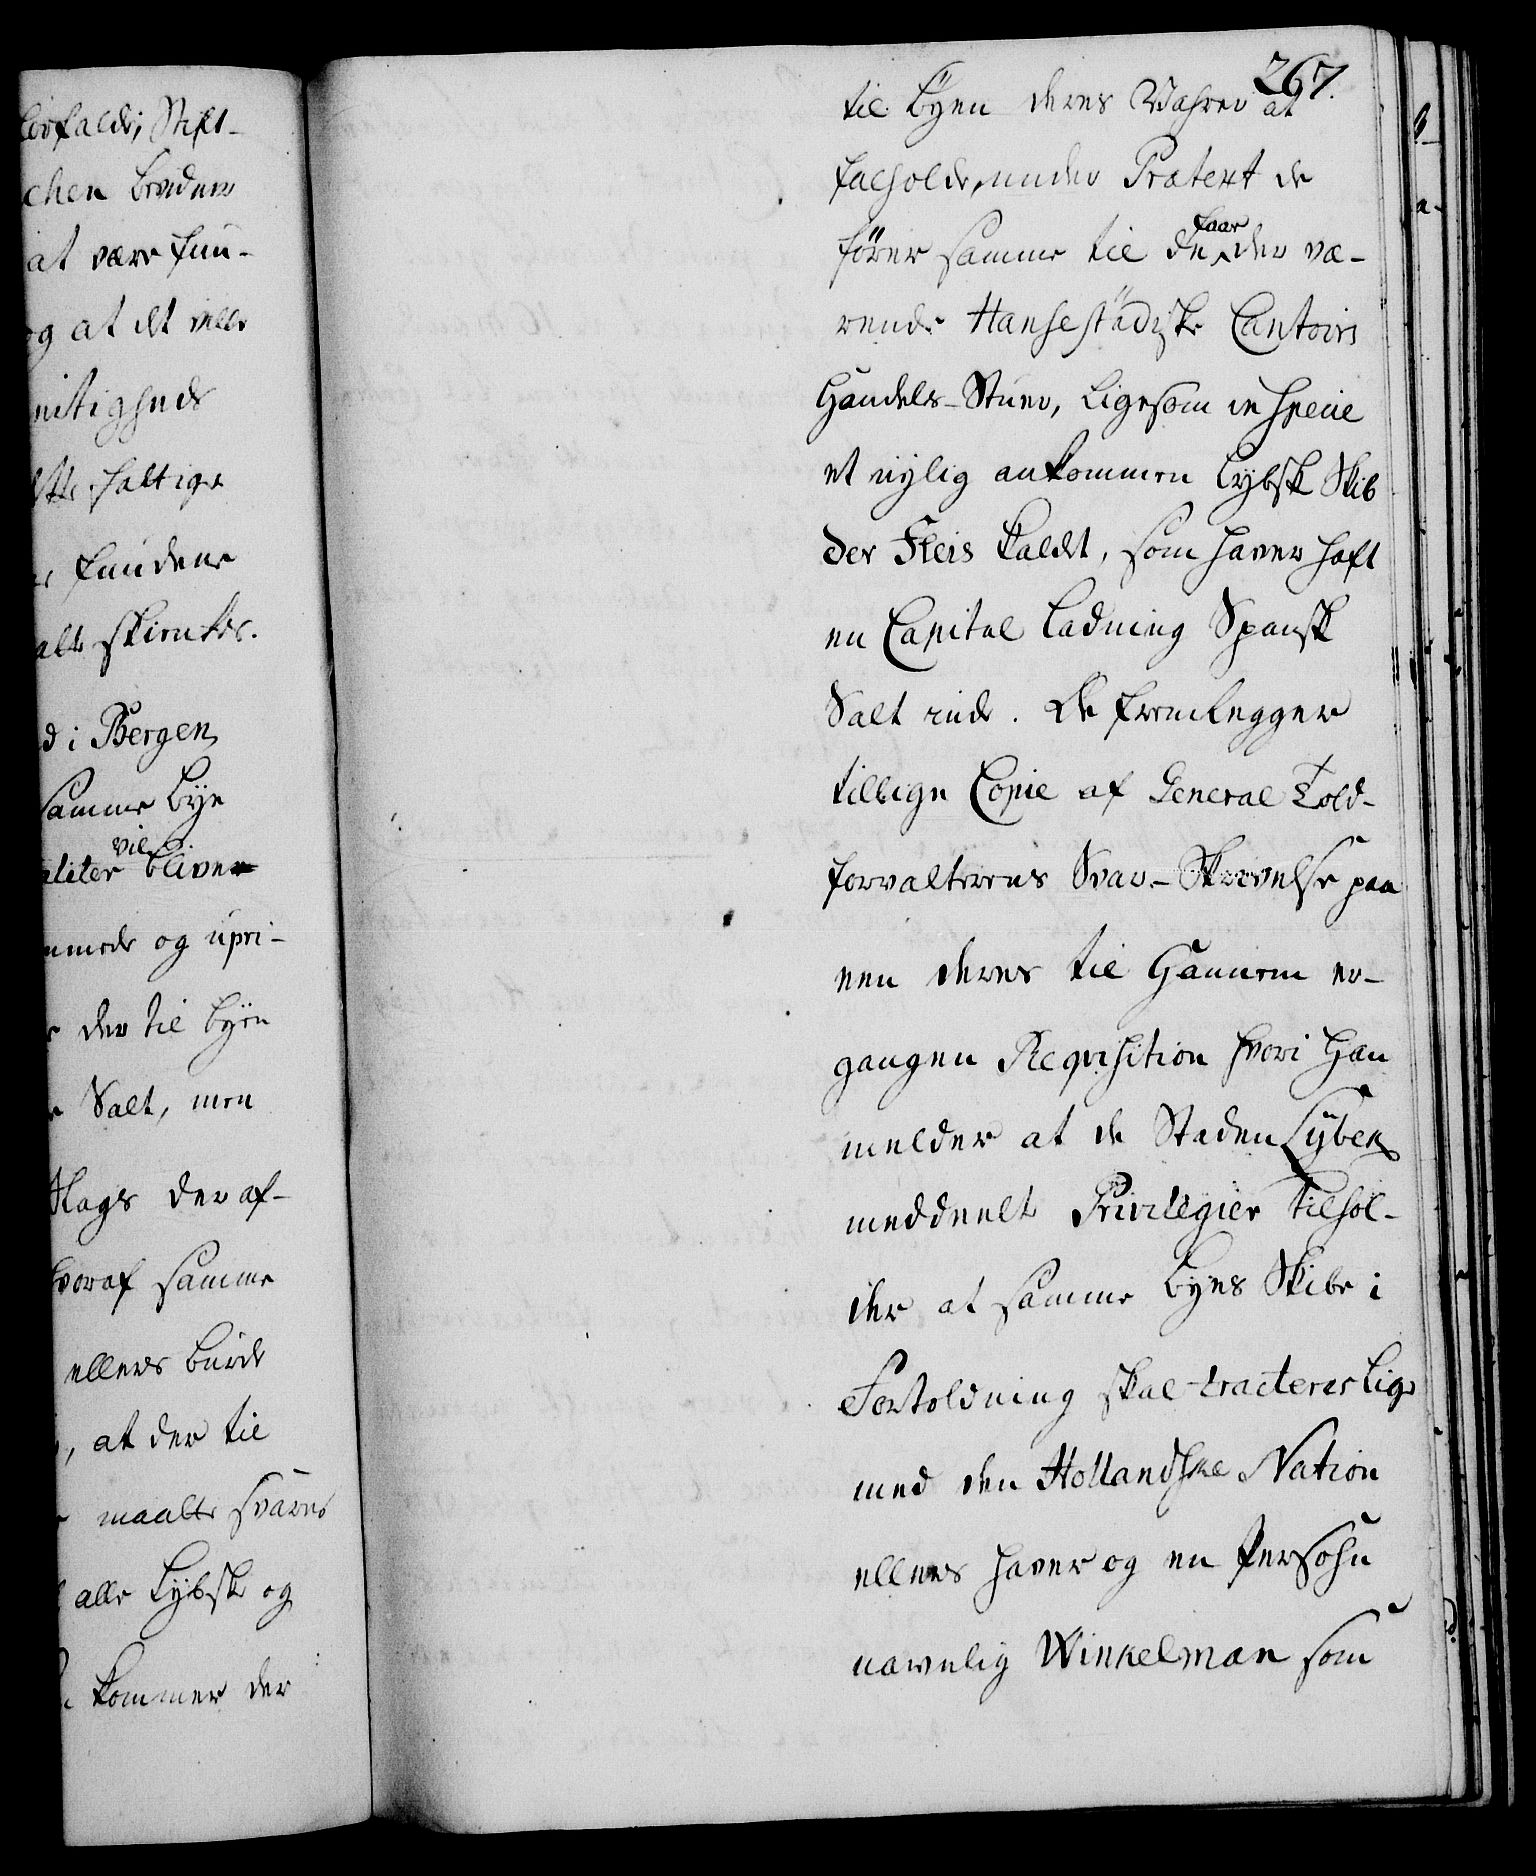 orfaldi, Stift-
chen brøden
at være fun-
og at det ville
eitigheds
ette haltige
fundene
alt skienkes.
d i Bergen,
samme Bye
vil
aliter bliver
mmede og upri-
der til Byen
Salt, men
slags der af-
hvoraf samme
ellers burde
, at der til
maalte svares
alle Lybske og
kommer der
267.
til Byen deres Vahrer at
falholde, under Prætext de
faar
fører samme til de der væ-
rende Hansestädiske Cantoirs
Handels-Stuer, ligesom in specie
et nylig ankommen Lybsk Skib
der Fleis kaldet, som haver haft
en Capital Ladning Spansk
Salt inde. De fremlegger
tillige Copie af General Told-
forvalterens Svar-Skrivelse paa
een deres til Hannem er-
gangen Reqvisition hvori Han
melder at de Staden Lybek
meddeelte Privilegier tilhol-
der at samme Byes Skibe i
Fortoldning skal tracteres lige
med den Hollandske Nation
ellers haver og en Persohn
navnlig Winkelman som